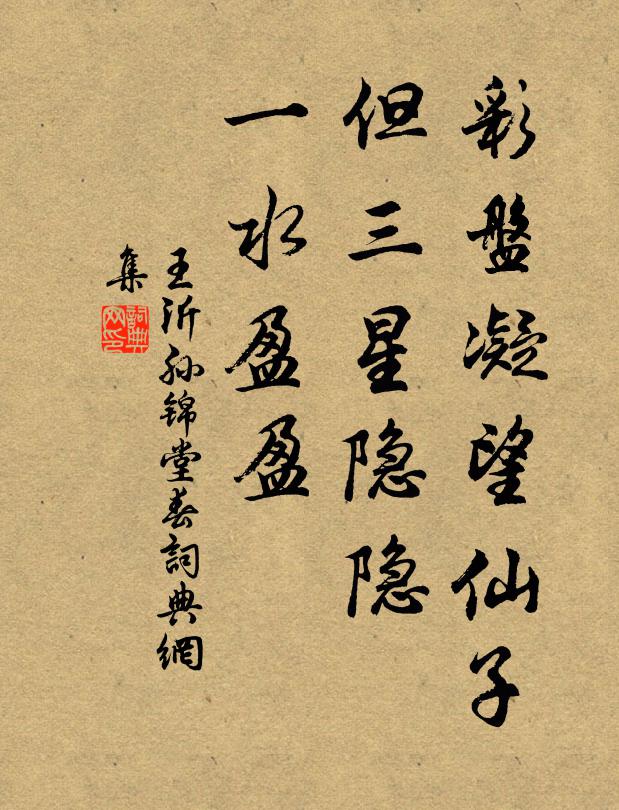 彩盤凝望仙子
但三星隐隐
一水盈盈
王沂孙锦堂春詞典網
集
詞典网印